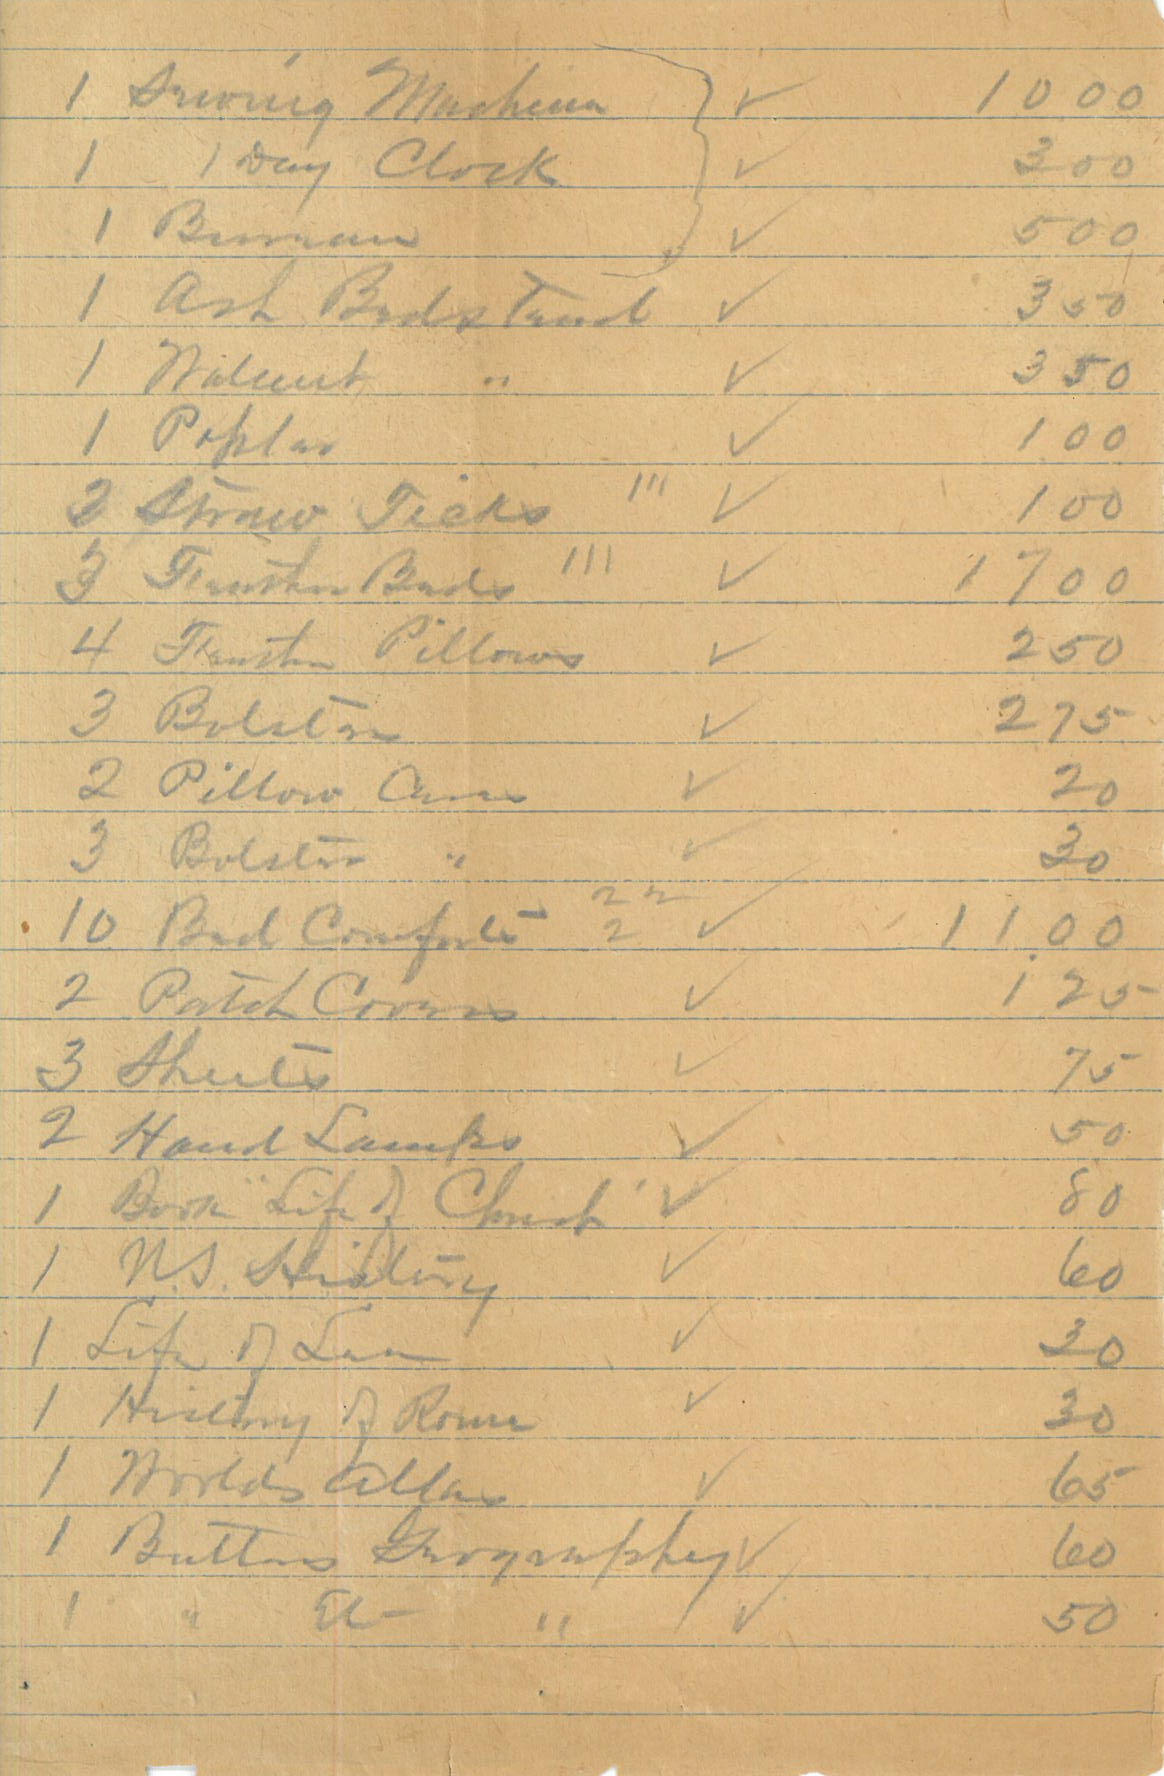 1 Sewing Machine ✓ 1000
1 1 Day Clock ✓ 300
1 Bureau ✓ 500
1 Ash Bedstead ✓ 350
1 Walnut " ✓ 350
1 Poplar ✓ 100
3 Straw Ticks III ✓ 100
3 Feather Beds III ✓ 1700
4 Feather Pillows ✓ 250
3 Bolsters ✓ 275
2 Pillow Cases ✓ 20
3 Bolster " ✓ 30
10 Bed Comforts 2 2 2 ✓ 1100
2 Patch Covers ✓ 125
3 Sheets ✓ 75
2 Hand Lamps ✓ 50
1 Book "Life of Christ" ✓ 80
1 U.S. History ✓ 60
1 Life of Lee ✓ 30
1 History of Rome ✓ 30
1 Worlds Atlas ✓ 65
1 Butlers Geography ✓ 60
1 " El- " ✓ 50